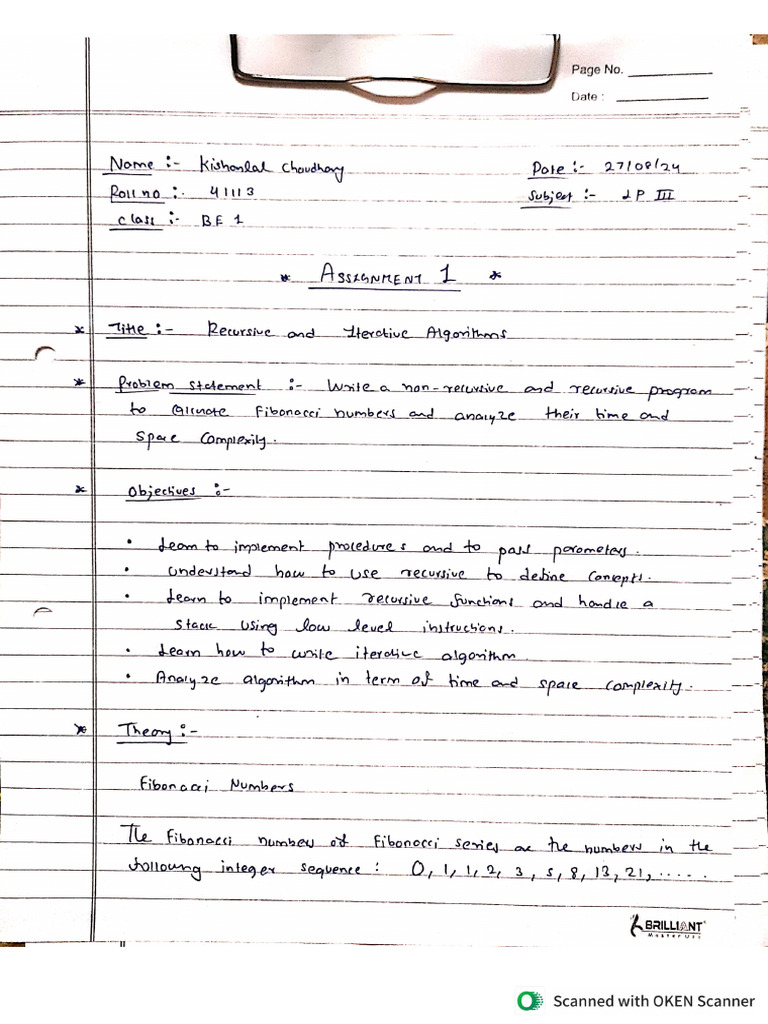 Page No.
Date :
Name :- Kishanlal Choudhary Date :- 27/08/24
Roll no :- 41113 Subject :- LP III
Class :- BE 1
* ASSIGNMENT 1 *
* Title :- Recursive and Iterative Algorithms
* Problem statement :- Write a non-recursive and recursive program
to Calculate Fibonacci numbers and analyze their time and
Space Complexity.
* Objectives :-
• Learn to implement procedures and to pass parameters.
• Understand how to use recursive to define Concepts.
• Learn to implement recursive functions and handle a
Stack using low level instructions.
• Learn how to write iterative algorithm
• Analyze algorithm in term of time and space complexity.
* Theory :-
Fibonacci Numbers
The Fibonacci numbers of Fibonacci series are the numbers in the
following integer sequence : 0, 1, 1, 2, 3, 5, 8, 13, 21, .....
BRILLIANT
Scanned with OKEN Scanner